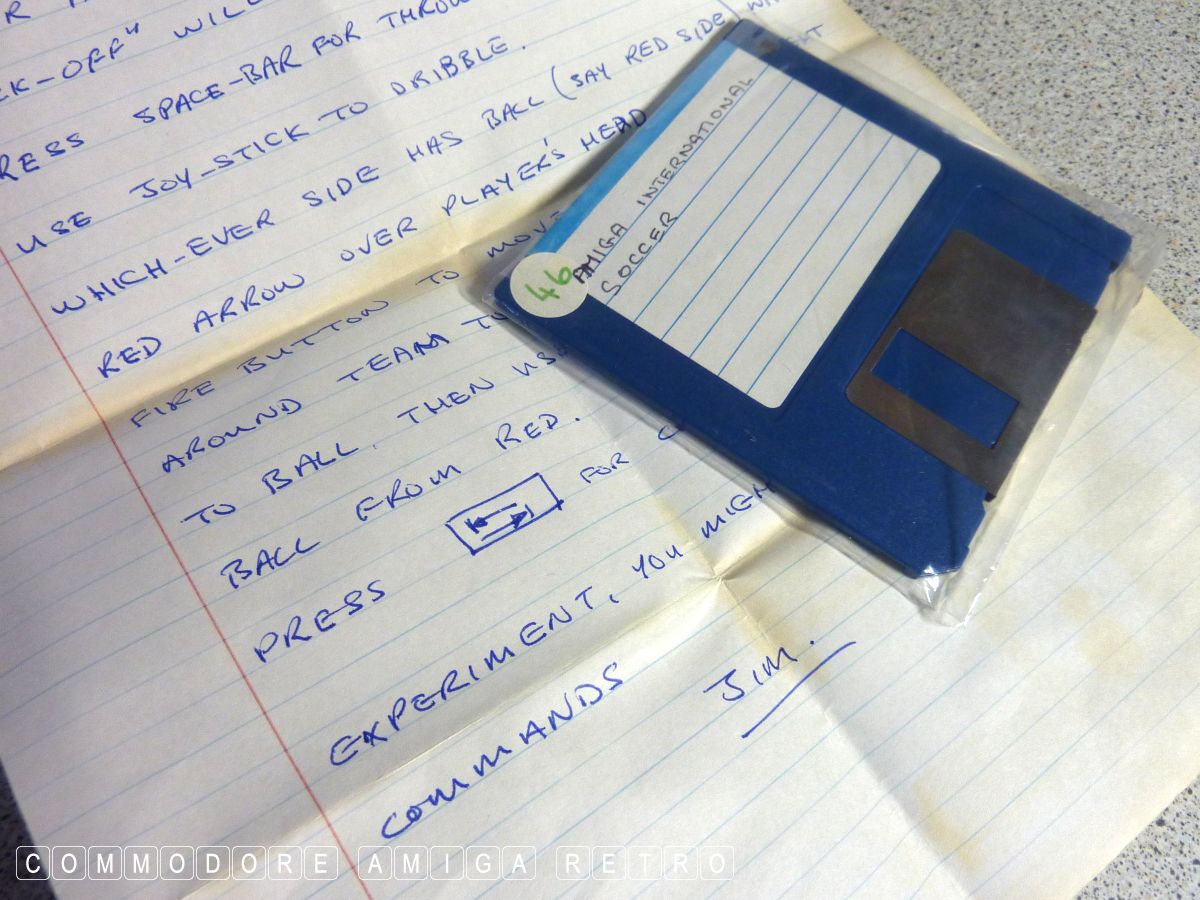 CK-OFF" WILL
RESS SPACE-BAR FOR THROW
USE JOY-STICK TO DRIBBLE.
WHICH-EVER SIDE HAS BALL (SAY RED SIDE)
RED ARROW OVER PLAYER'S HEAD
FIRE BUTTON TO MOVE
AROUND TEAM TO
TO BALL, THEN USE
BALL FROM RED.
PRESS FOR
EXPERIMENT, YOU MIGH
COMMANDS
JIM.
46
AMIGA INTERNATIONAL
SOCCER
COMMODORE AMIGA RETRO